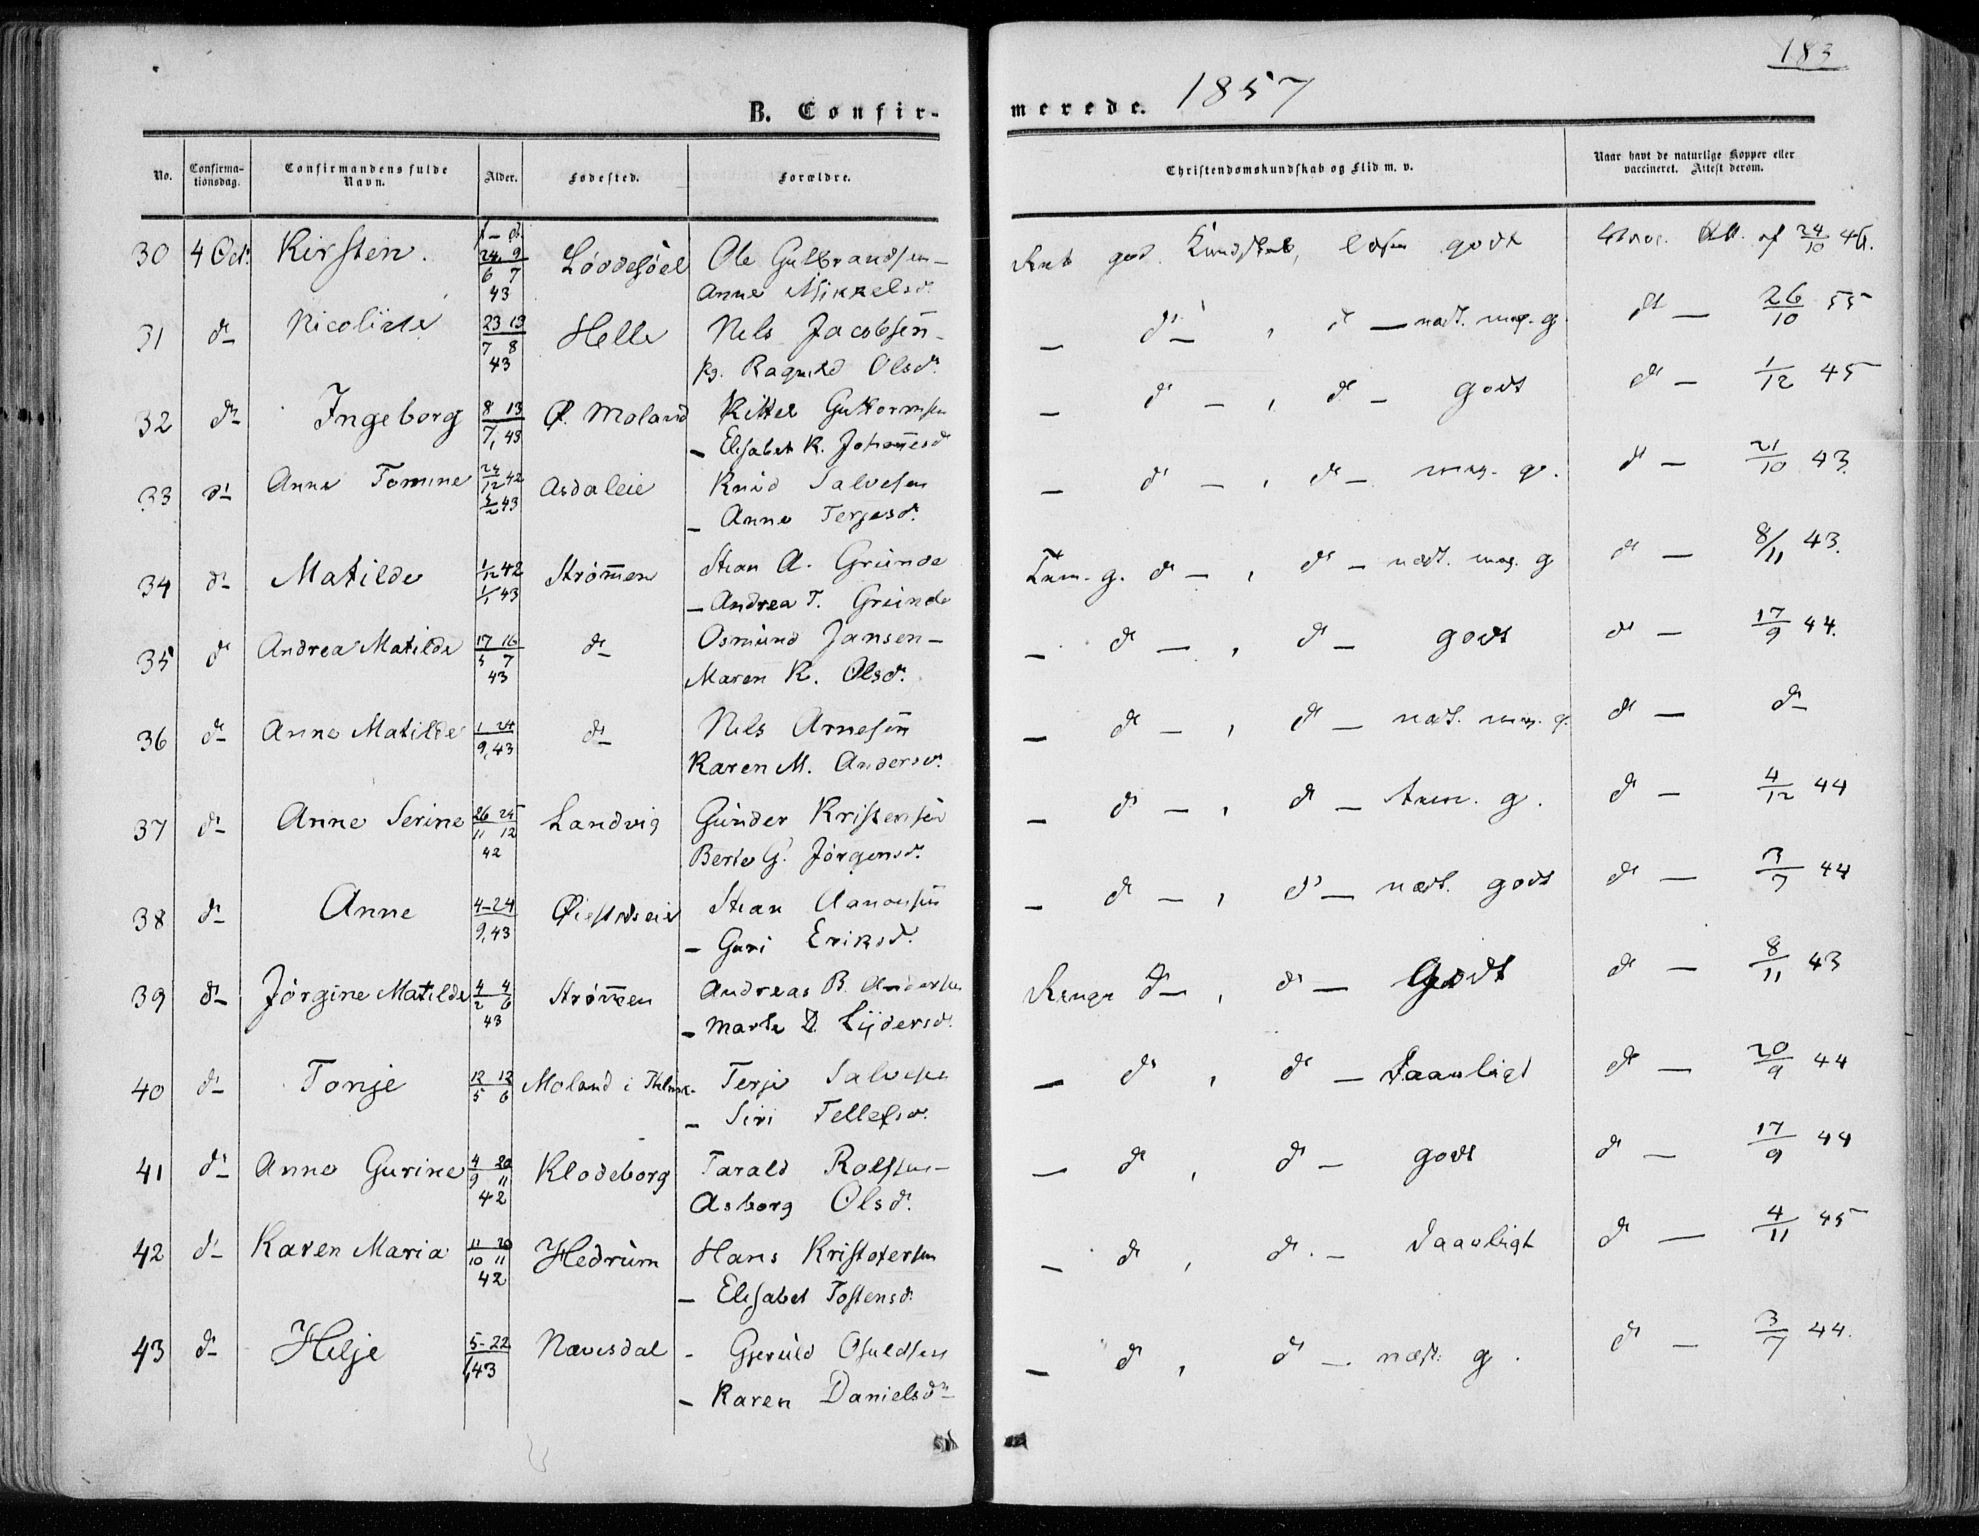 183
B. Confirmerede. 1857
No. Confirmationsdag. Confirmandens fulde Navn. Alder. Fødested. Forældre. Christendomskundskab og Flid m. v. Naar havt de naturlige Kopper eller vaccineret. Attest derom.
f - d.
30 4 Oct. Kirsten. 24/6 9/7 43 Løddesøel Ole Gulbrandsen - god Kundskab, godt Att. af 24/10 46.
Anne Mikkelsd.
31 d- Nicoline 23/7 13/8 43 Helle Nels Jacobsen - - d - , d - nadt. meg. g. d - 26/10 55
Kg. Ragnild Olsd.
32 d- Ingeborg 8 13/7, 43 Ø. Moland Kittel Guttormsen - d - , d - godt d - 1/12 45
- Elisabet K. Johannesd
33 d- Anne Tomine 24/12 42 5/2 43 Asdaleie Knud Salvesen - d - , d - meg. g. d - 21/10 43.
- Anne Terjesd.
34 d- Matilde 1/12 42 1/1 43 Strømen Stian A. Grunde Tem. g. d - , d - nadt. meg. g d - 8/11 43.
- Andrea T. Grunde
35 d Andrea Matilde 17/5 16/7 43 d- Osmund Jansen - - d - , d - godt d - 17/9 44.
Maren K. Olsd.
36 d- Anne Matilde 1 24/9, 43 d- Nels Arnesen - d - , d - nadt. meg. g. d - d-
Karen M. Andersd.
37 d- Anne Serine 26/11 25/12 42 Landvig Gunder Kristensen - d - , d - tem. g. d - 4/12 44
Berte G. Jørgensd.
38 d- Anne 4-24/9, 43 Stian Aanonsen - d - , d - nadt. godt d - 3/7 44
- Guri Eriksd.
39 d- Jørgine Matilde 4/2 4/6 43 Strømen Andreas B. Andersen Ringe d - , d - Godt d - 8/11 43
- Marte D. Lydersd.
40 d- Tonje 12/5 12/6 Moland i Terje Salvesen - d , d - Daarligt d - 20/9 44
- Siri Tellefsd.
41 d- Anne Gurine 4/9 20/11 42 Klodeborg Tarald Rolfsen - - d , d - godt d - 17/9 44
Asborg Olsd.
42 d- Karen Maria 11/10 20/11 42 Hedrum Hans Kristofersen - d , d - Daarligt d - 4/11 45
- Elisabet Tostensd.
43 d- Helje 5-22/1, 43 Nævesdal - Gjeruld Osuldsen - d , d - nadt. g. d - 3/7 44.
- Karen Danielsd-